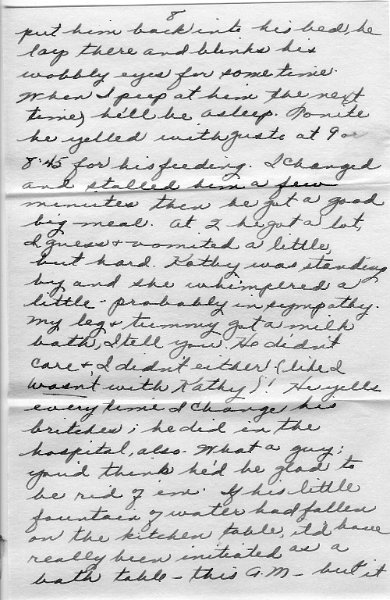 8
put him back into his bed, he
lay there and blinks his
wobbly eyes for some time.
When I peep at him the next
time, he'll be asleep. Tonite
he yelled with gusto at 9 or
8:45 for his feeding. I changed
and stalled him a few
minutes then he got a good
big meal. At 2 he got a lot,
I guess & vomited a little,
but hard. Kathy was standing
by and she whimpered a
little - probably in sympathy.
My leg & tummy got a milk
bath, I tell you. He didn't
care & I didn't either (like I
wasn't with Kathy)! He yells
every time I change his
britches; he did in the
hospital, also. What a guy;
you'd think he'd be glad to
be rid of 'em. If his little
fountain of water had fallen
on the kitchen table, it'd have
really been initiated as a
bath table - this A.M. - but it